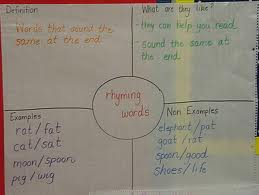 Definition
Words that sound the
same at the end.
What are they like?
- they can help you read.
- sound the same at
the end.
rhyming
words
Examples
rat/fat
cat/sat
moon/spoon
pig/wig
Non Examples
elephant/pat
goat/rat
spoon/good
shoes/life